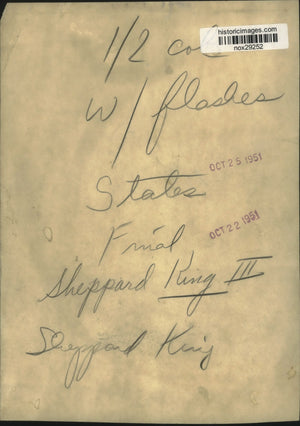 historicimages.com
nox29252
1/2 col
w/ flashes
OCT 25 1951
States
OCT 22 1951
Final
Sheppard King III
Sheppard King